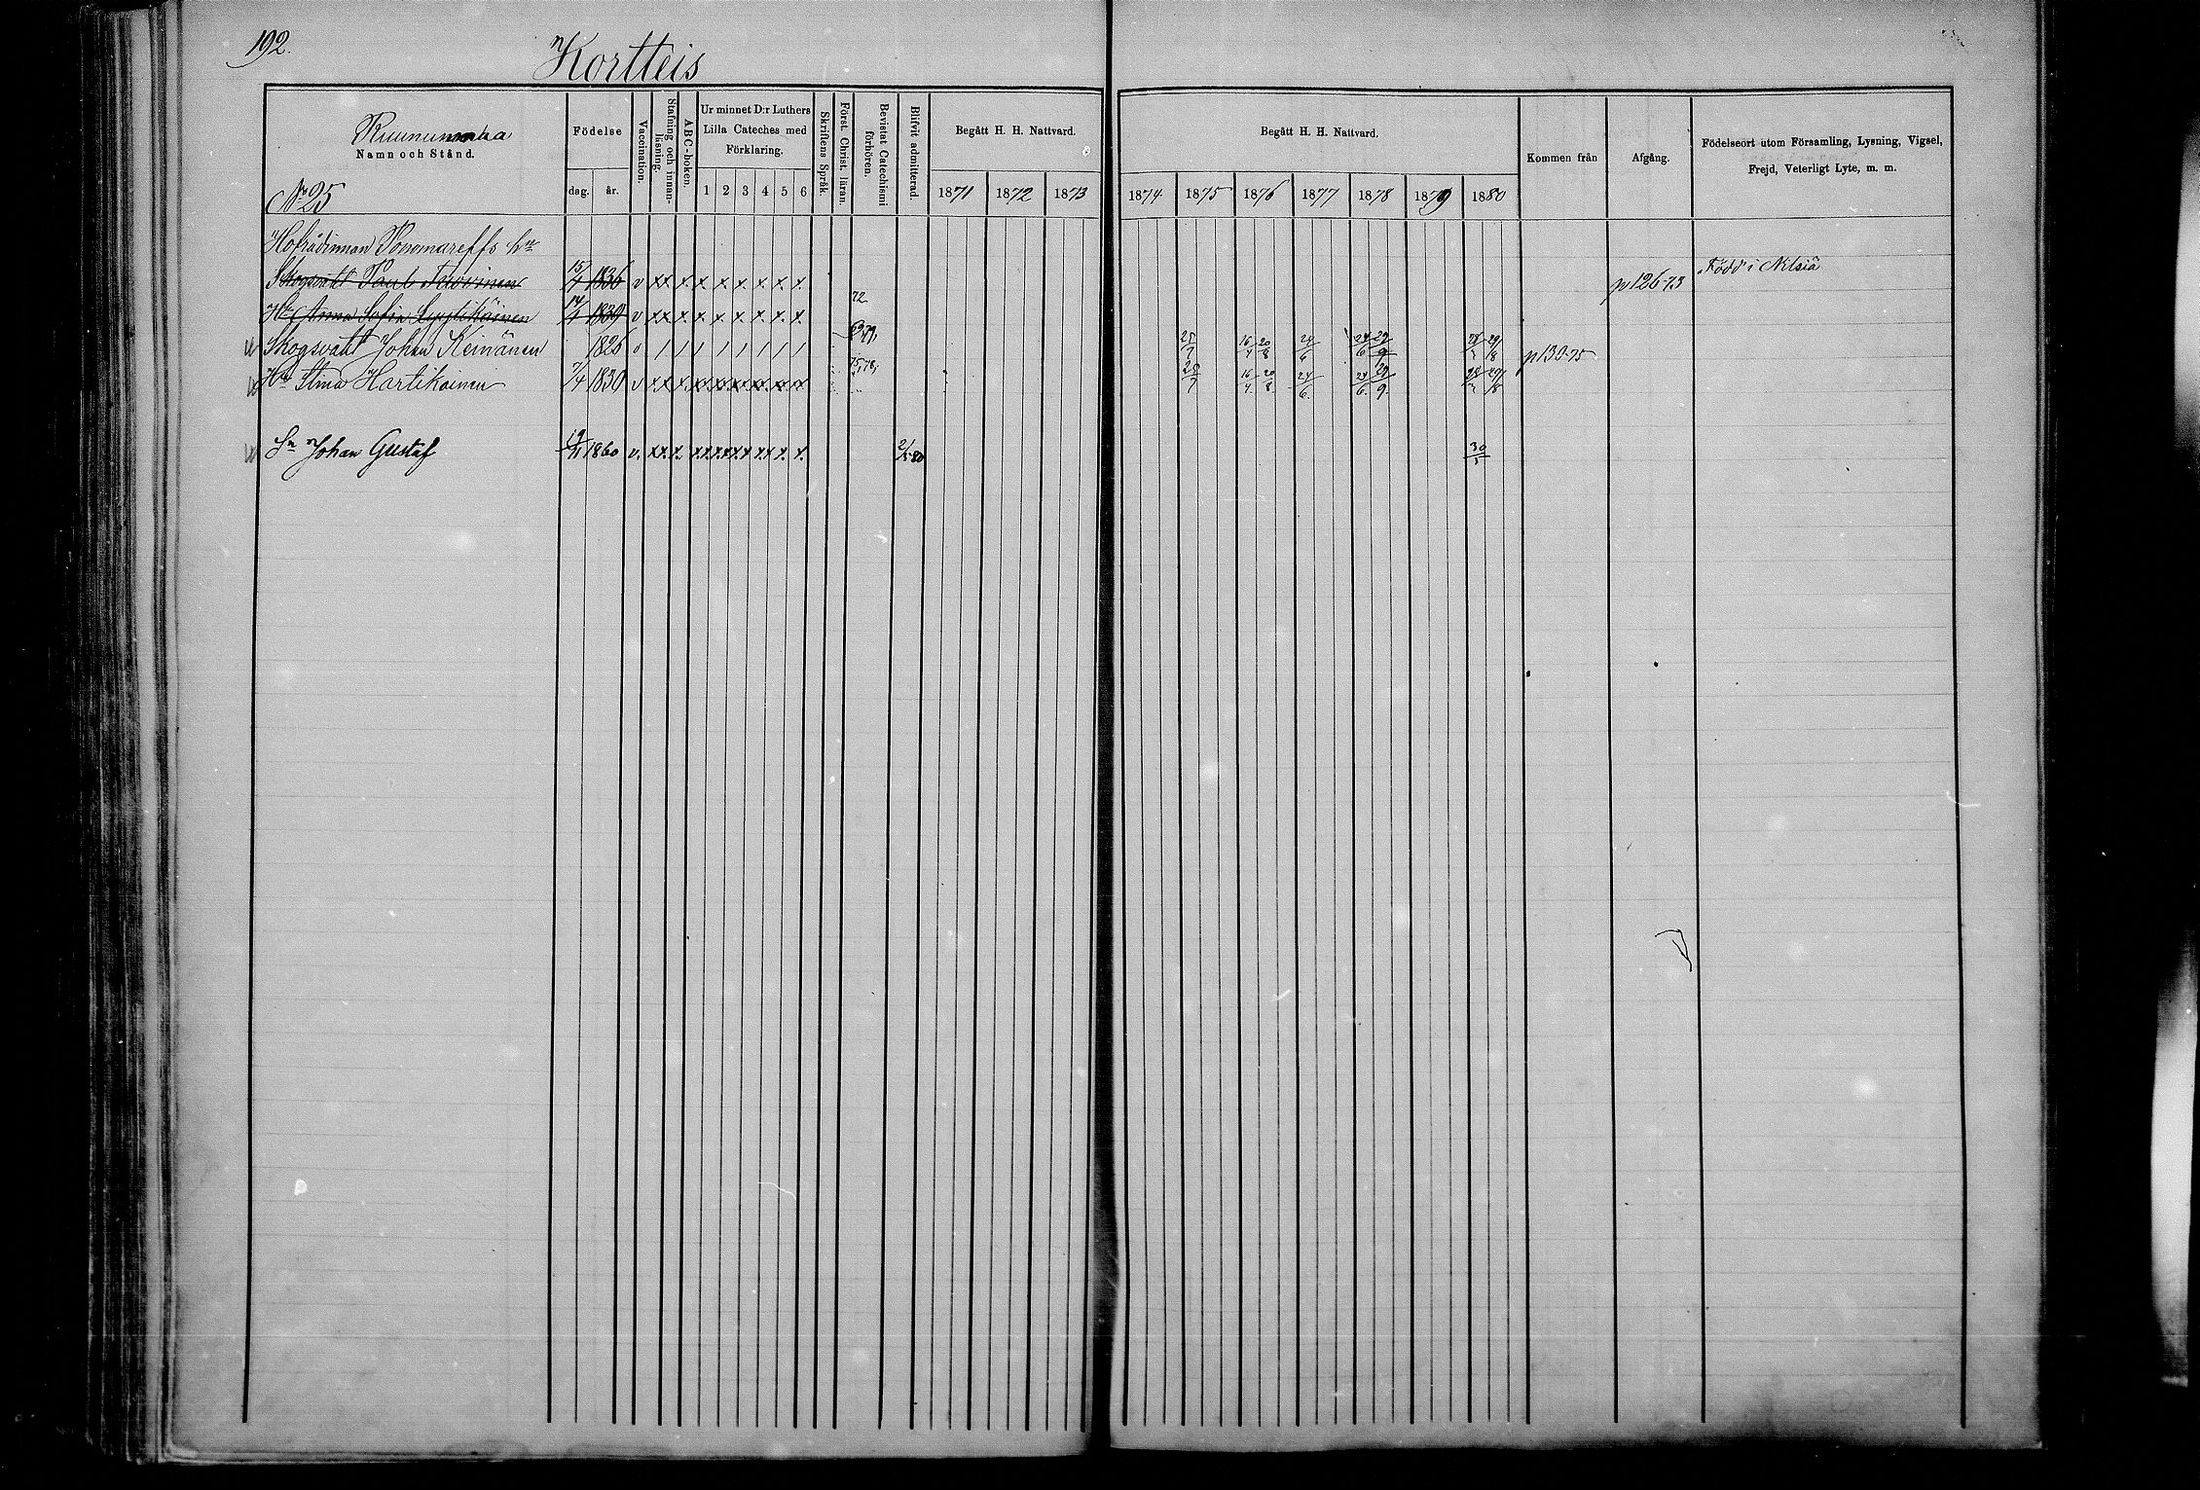 192.
Kortteis
Ruunumaha
Namn och Stånd.
No 25
Födelse
dag. år.
Vaccination.
Stafning och innan-läsning.
A B C-boken.
Ur minnet D:r Luthers
Lilla Cateches med
Förklaring.
1 2 3 4 5 6
Skriftens Språk.
Först. Christ. läran.
Bevistat Catechismi förhören.
Blifvit admitterad.
Begått H. H. Nattvard.
1871 1872 1873
Begått H. H. Nattvard.
1874 1875 1876 1877 1878 1879 1880
Kommen från
Afgång.
Födelseort utom Församling, Lysning, Vigsel,
Frejd, Veterligt Lyte, m. m.
Hofrådinnan Ponomareffs
Skogsvakt Paul 15/4 1836 v xx x x x x x x x p 126-73 Född i Nilsiä
Hu Anna Sofia 14/4 1839 v xx x x x x x x x 72
Skogsvakt Johan Keinänen 1826 25/7 16/4 20/8 24/6 p 130-75
Hu Stina Hartikainen 7/4 1830 v 75, 78, 16/4 20/8 24/6
Sn Johan Gustaf 1860 v. 2/5 80 30/5